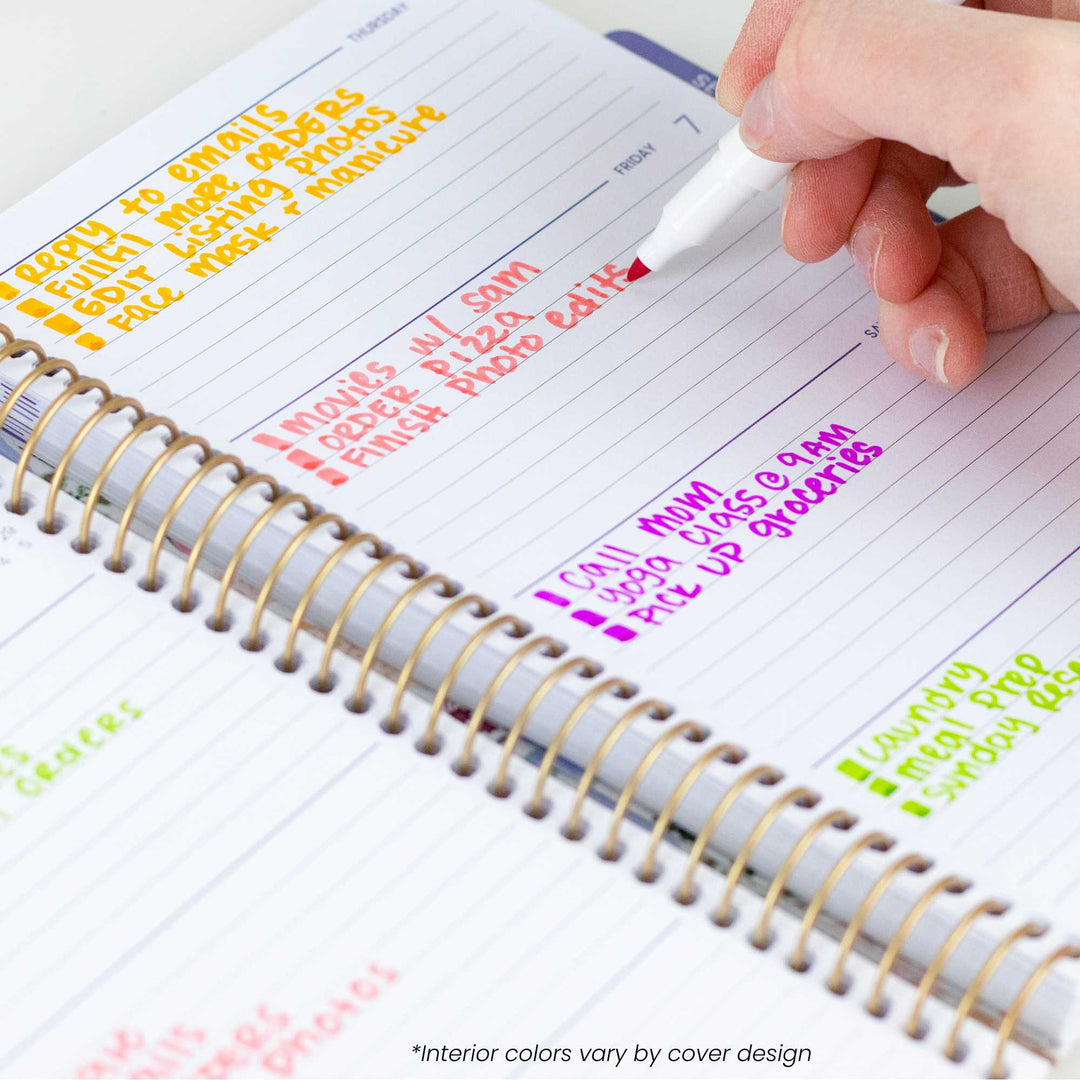 THURSDAY
Reply to emails
Fulfill more ORDERS
EDIT Listing photos
Face mask + manicure
7
FRIDAY
movies w/ sam
ORDER pizza
FINISH photo edits
SA
Call mom
yoga class @ 9 AM
PICK UP groceries
Laundry
meal prep
Sunday
orders
photos
*Interior colors vary by cover design